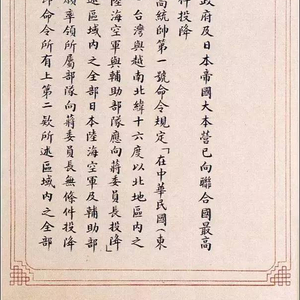 政府及日本帝國大本營已向聯合國最高
件投降
高統帥第一號命令規定「在中華民國（東
台灣與越南北緯十六度以北地區內之
陸海空軍與輔助部隊應向蔣委員長投降」
述區域內之全部日本陸海空軍及輔助部
領率領所屬部隊向蔣委員長無條件投降
即命令所有上第二款所述區域內之全部